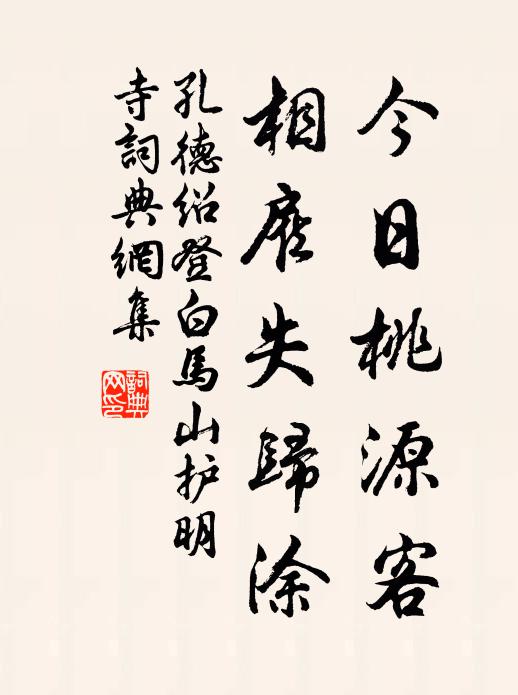 今日桃源客
相顧失歸涂
孔德绍登白馬山护明
寺詞典網集
詞典網印